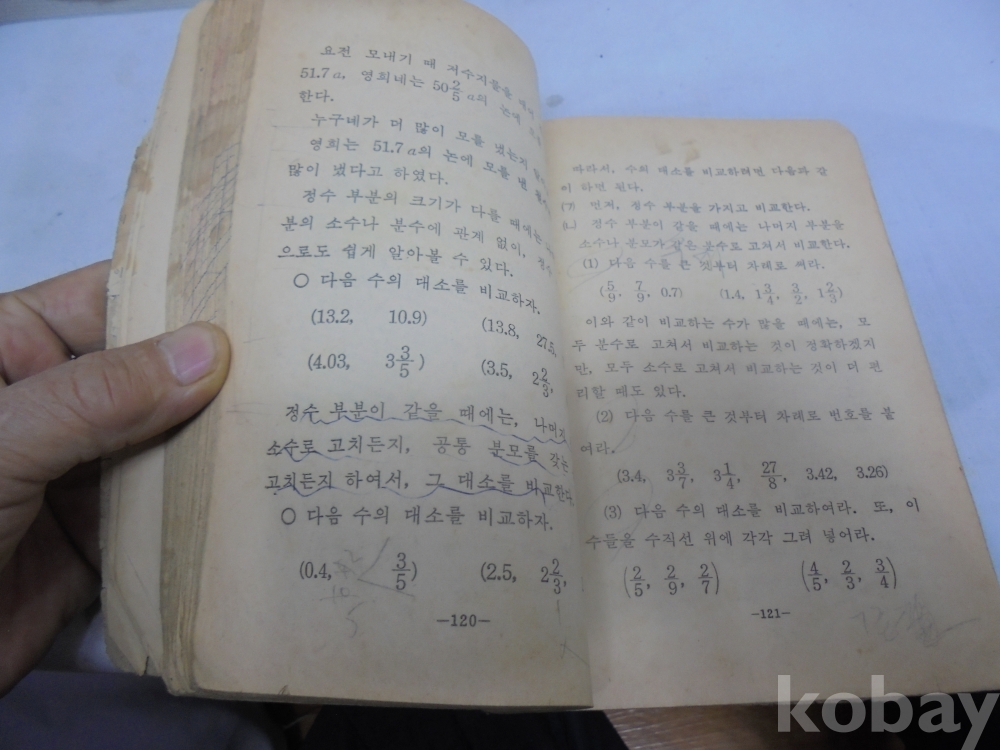 요전 모내기 때 저수지물을
51.7a, 영희네는 50 2/5 a의 논에
한다.
누구네가 더 많이 모를 냈는지
영희는 51.7a의 논에 모를 낸
많이 냈다고 하였다.
정수 부분의 크기가 다를 때에는
분의 소수나 분수에 관계 없이,
으로도 쉽게 알아볼 수 있다.
○ 다음 수의 대소를 비교하자.
(13.2, 10.9) (13.8, 27.5,
(4.03, 3 3/5) (3.5, 2 2/3,
정수 부분이 같을 때에는, 나머지
소수로 고치든지, 공통 분모를 갖는
고치든지 하여서, 그 대소를 비교한다.
○ 다음 수의 대소를 비교하자.
(0.4, 3/5) (2.5, 2 2/3,
5
-120-
따라서, 수의 대소를 비교하려면 다음과 같
이 하면 된다.
(ㄱ) 먼저, 정수 부분을 가지고 비교한다.
(ㄴ) 정수 부분이 같을 때에는 나머지 부분을
소수나 분모가 같은 분수로 고쳐서 비교한다.
(1) 다음 수를 큰 것부터 차례로 써라.
(5/9, 7/9, 0.7) (1.4, 1 3/4, 3/2, 1 2/3)
이와 같이 비교하는 수가 많을 때에는, 모
두 분수로 고쳐서 비교하는 것이 정확하겠지
만, 모두 소수로 고쳐서 비교하는 것이 더 편
리할 때도 있다.
(2) 다음 수를 큰 것부터 차례로 번호를 붙
여라.
(3.4, 3 3/7, 3 1/4, 27/8, 3.42, 3.26)
(3) 다음 수의 대소를 비교하여라. 또, 이
수들을 수직선 위에 각각 그려 넣어라.
(2/5, 2/9, 2/7) (4/5, 2/3, 3/4)
-121-
kobay